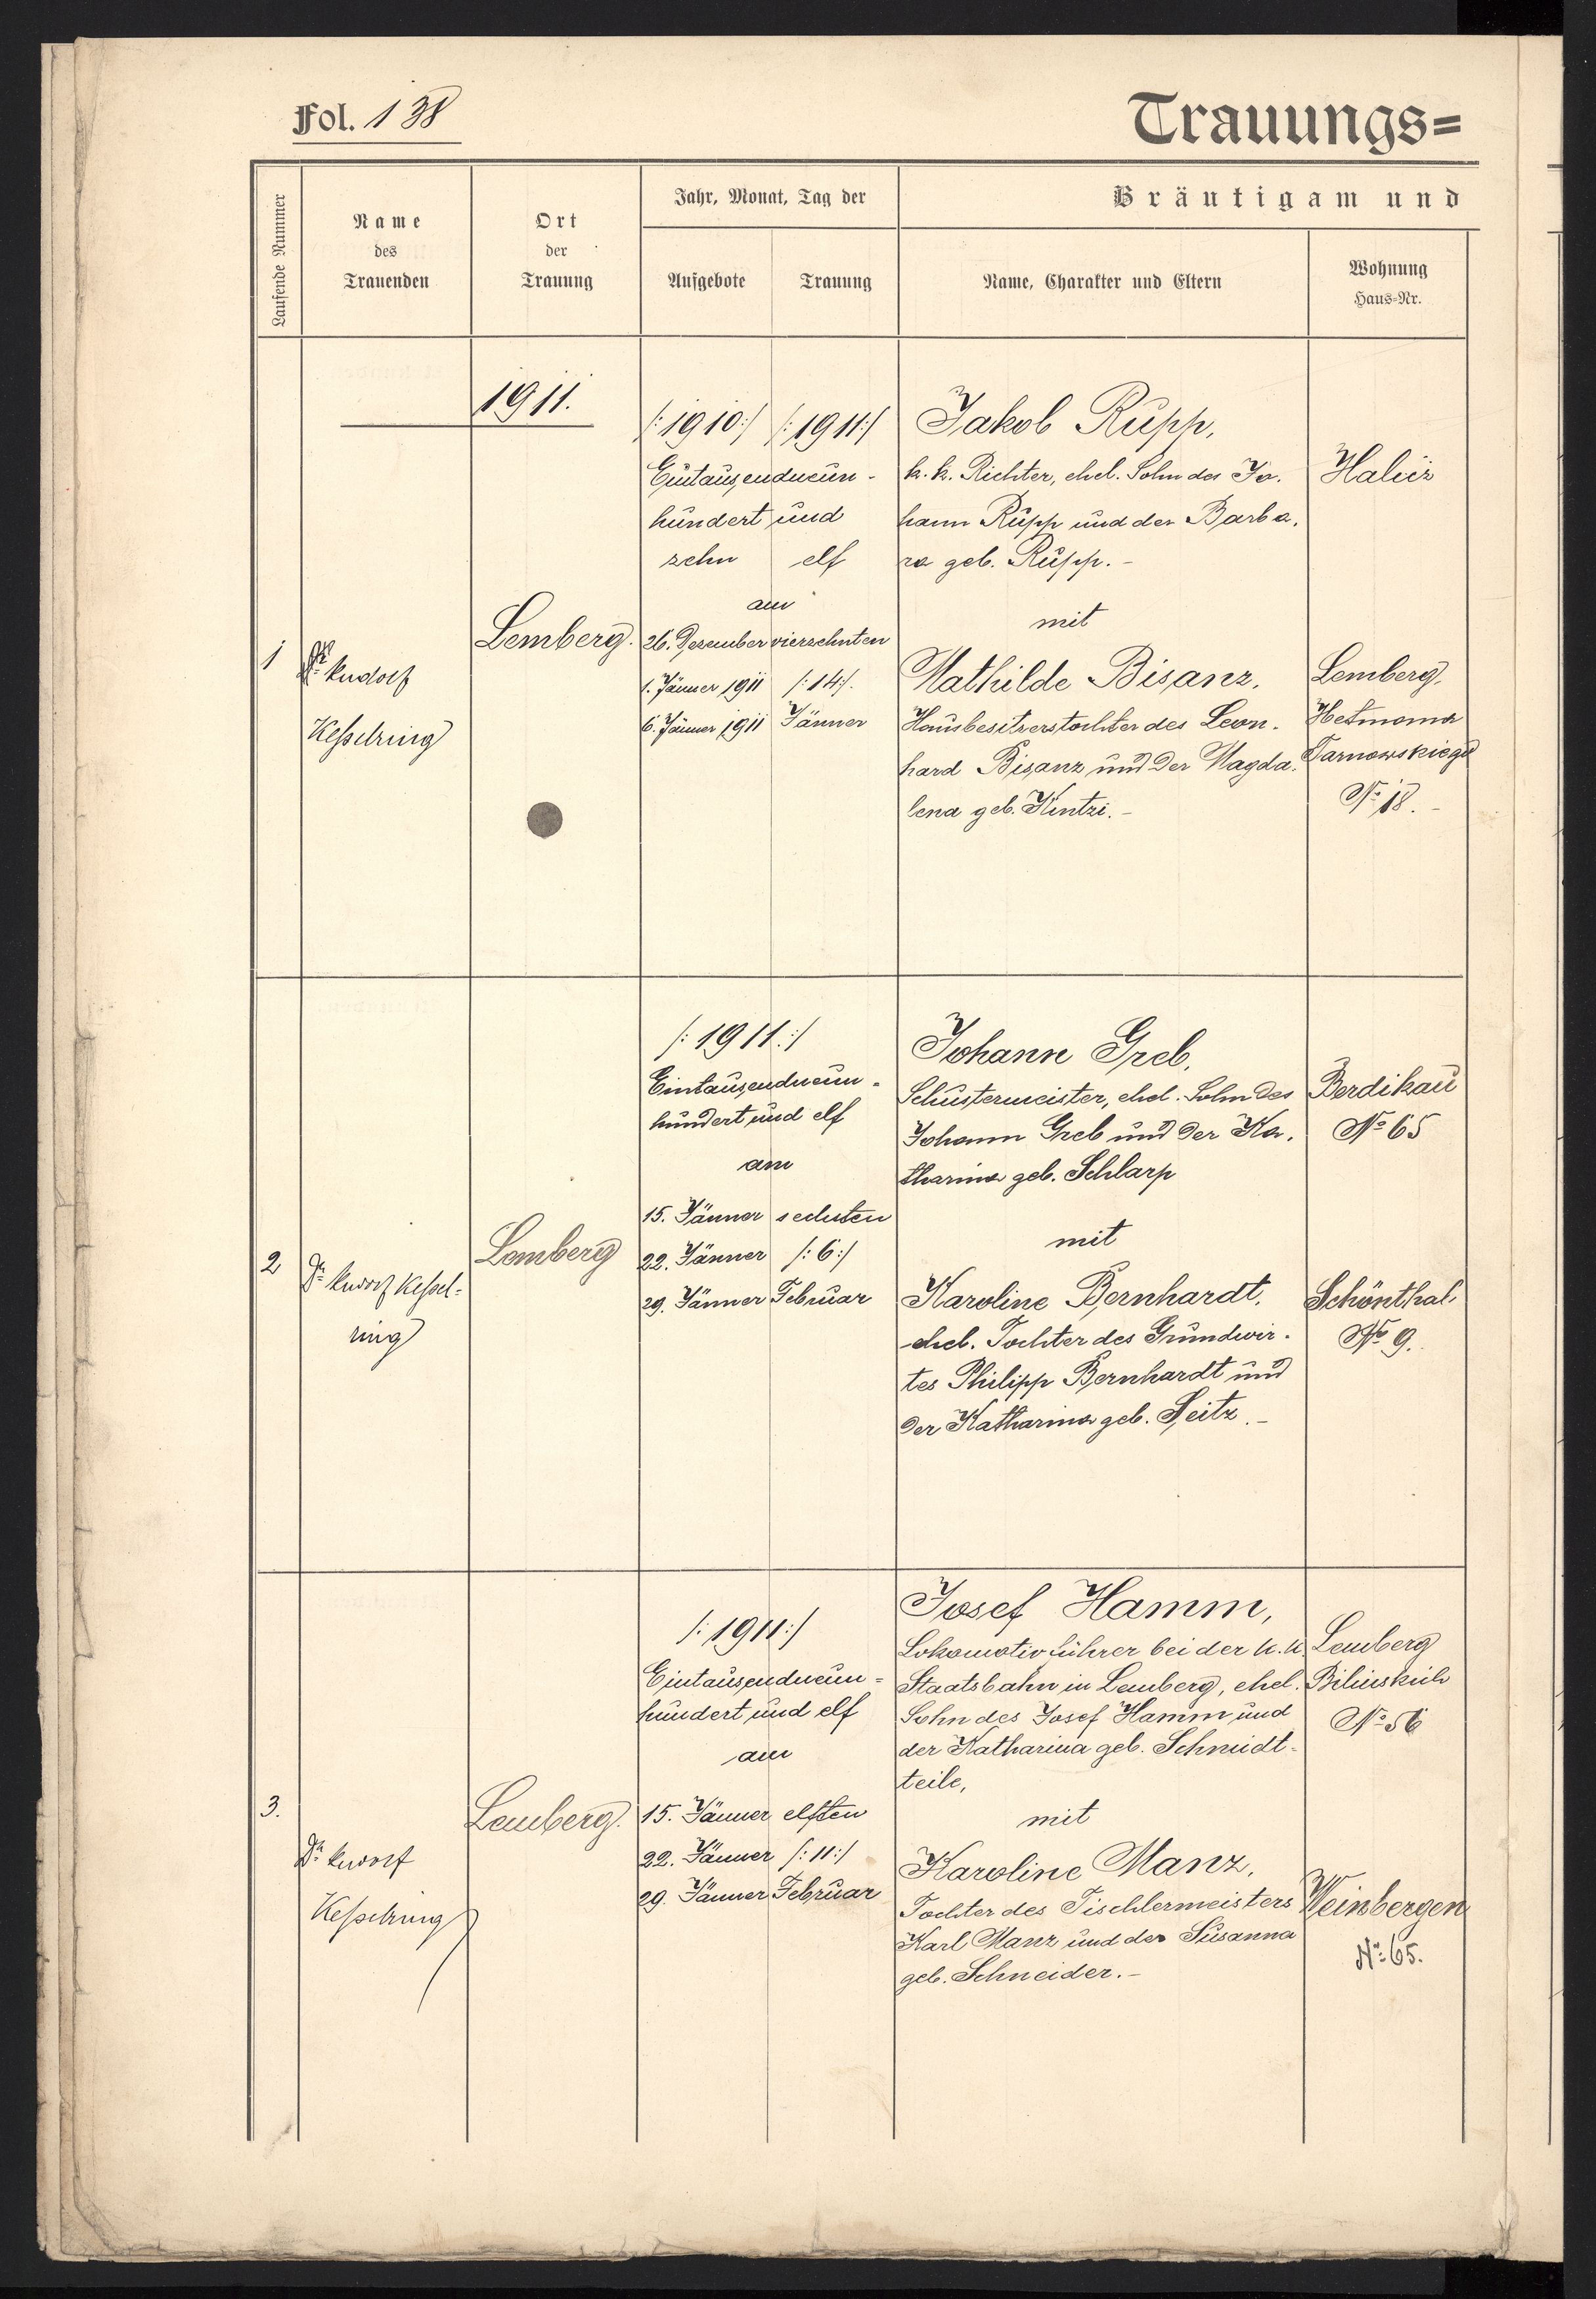 Fol. 138
Trauungs=
Laufende Nummer
Name
des
Trauenden
Ort
der
Trauung
Jahr, Monat, Tag der
Aufgebote
Trauung
Bräutigam und
Name, Charakter und Eltern
Wohnung
Haus-Nr.
1911.
1
Dr. Rudolf
Kesselring
Lemberg.
/:1910:/ /:1911:/
Eintausendneun-
hundert und
zehn elf
am
26. Dezember vierzehnten
1. Jänner 1911 /:14:/.
6. Jänner 1911 Jänner
Jakob Rupp,
k. k. Richter, ehel. Sohn des Jo.
hann Rupp und der Barba.
ra geb. Rupp.-
mit
Mathilde Bisanz,
Hausbesitzerstochter des Leon.
hard Bisanz und der Magda.
lena geb. Kintzi.-
Halicz
Lemberg,
Hetmana
Tarnowskiego
No. 18.-
2
Dr. Rudolf Kessel-
ring
Lemberg
/:1911:/
Eintausendneun-
hundert und elf
am
15. Jänner sechsten
22. Jänner /:6:/
29. Jänner Februar
Johann Greb,
Schustermeister, ehel. Sohn des
Johann Greb und der Ka.
tharina geb. Schlarp
mit
Karoline Bernhardt,
ehel. Tochter des Grundwir.
tes Philipp Bernhardt und
der Katharina geb. Seitz.-
Berdikau
No. 65
Schönthal
No 9.
3.
Dr. Rudolf
Kesselring
Lemberg.
/:1911:/
Eintausendneun=
hundert und elf
am
15. Jänner elften
22. Jänner /:11:/
29. Jänner Februar
Josef Hamm,
Lokomotivführer bei der k. k.
Staatsbahn in Lemberg, ehel.
Sohn des Josef Hamm und
der Katharina geb. Schmidt-
teile,
mit
Karoline Manz,
Tochter des Tischlermeisters
Karl Manz und der Susanna
geb. Schneider.-
Lemberg
No. 56
Weinbergen
No. 65.